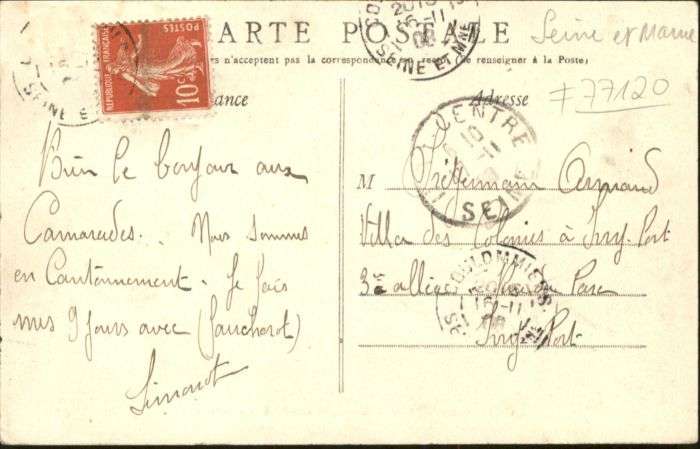 CARTE POSTALE
Seine et Marne
77120
rs n'acceptent pas la correspondance au recto se renseigner à la Poste
POSTES
REPUBLIQUE FRANÇAISE
10c
ance
Adresse
SEINE ET MNE
SEINE E
CENTRE
10
11
SEINE
Bien le bonjour aux
Camarades. Nous sommes
en Cantonnement. Je fais
mes 9 jours avec (Paucherot)
Simonot
M Armand
Villa des Colonies à Ivry-Port
3e allée du Parc
Ivry Port
COULOMMIERS
16-11